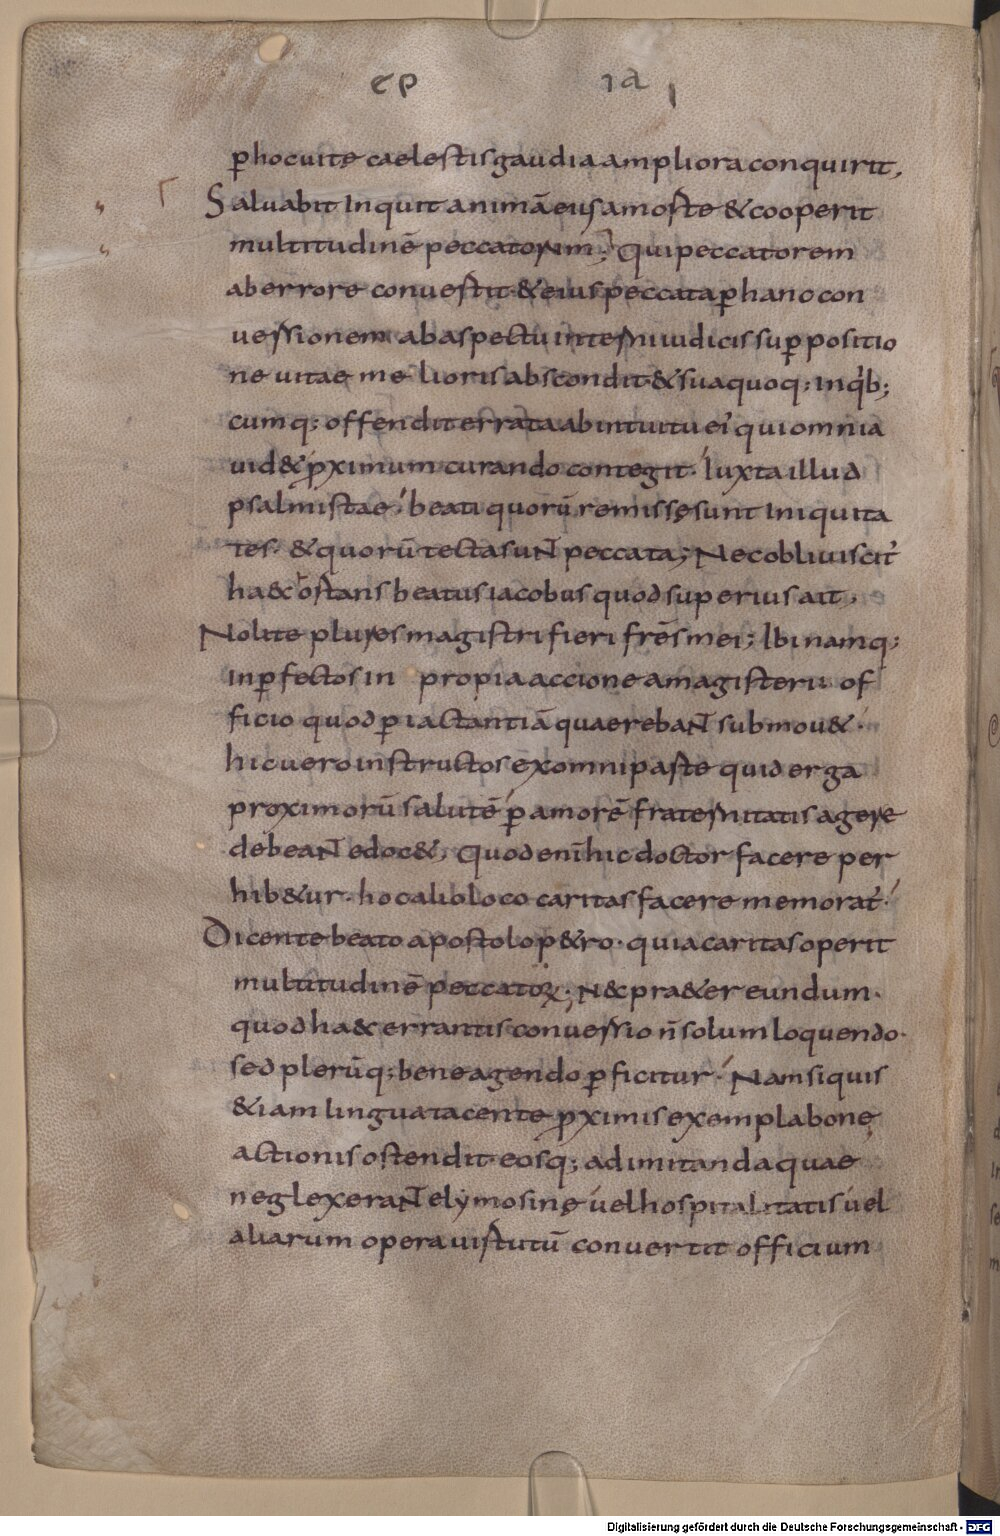 ep ia
p̲hocuitę caelestisgaudiaamplioraconquirit,
Saluabit Inquit animāeiusamorte &cooperit
multitudinē peccatorum; Quipeccatorem
aberrore conuertit·&eiuspeccatap̲hanccon
uersionem abaspectuinterniiudicissup̲positio
ne uitae melioris abscondit·&suaquoq; inqꝰb;
cumq; offenditerrataabintuituei' quiomnia
uid&p̲ximumcurando contegit· Iuxtaillud
psalmistae; beati quorū remissęsunt Iniquita
tes· &quorūtectasuNT peccata; Necobliuiscit'
ha&c̄ostans beatusiacobus quodsuperiusait,
Nolite pluresmagistrifieri frēsmei; Ibinamq;
inp̲fectosin propiaaccioneamagisterii of
ficio quodp̲iactantiā quaerebaNT submou&·
hicueroinstructosexomniparte quiderga
proximorū salutē p̲amorē fraternitatisagere
debeaNT edoc&, Quodenīhicdoctor facere per
hib&ur· hocalibloco caritasfacerememorat'·
Dicentebeatoapostolop&ro· quiacaritasoperit
multitudinē peccatoꝝ; N&cpra&ereundum·
quodha&cerrantisconuersio n̄solumloquendo·
sed plerūq;beneagendo p̲ficitur· Namsiquis
&iamlinguatacente p̲ximisexemplabonę
actionisostendit·eosq; adimitandaquae
neglexeraNT elymosinę uelhospitalitatisuel
aliarum operauirtutū conuertit officium
Digitalisierung gefördert durch die Deutsche Forschungsgemeinschaft - DFG